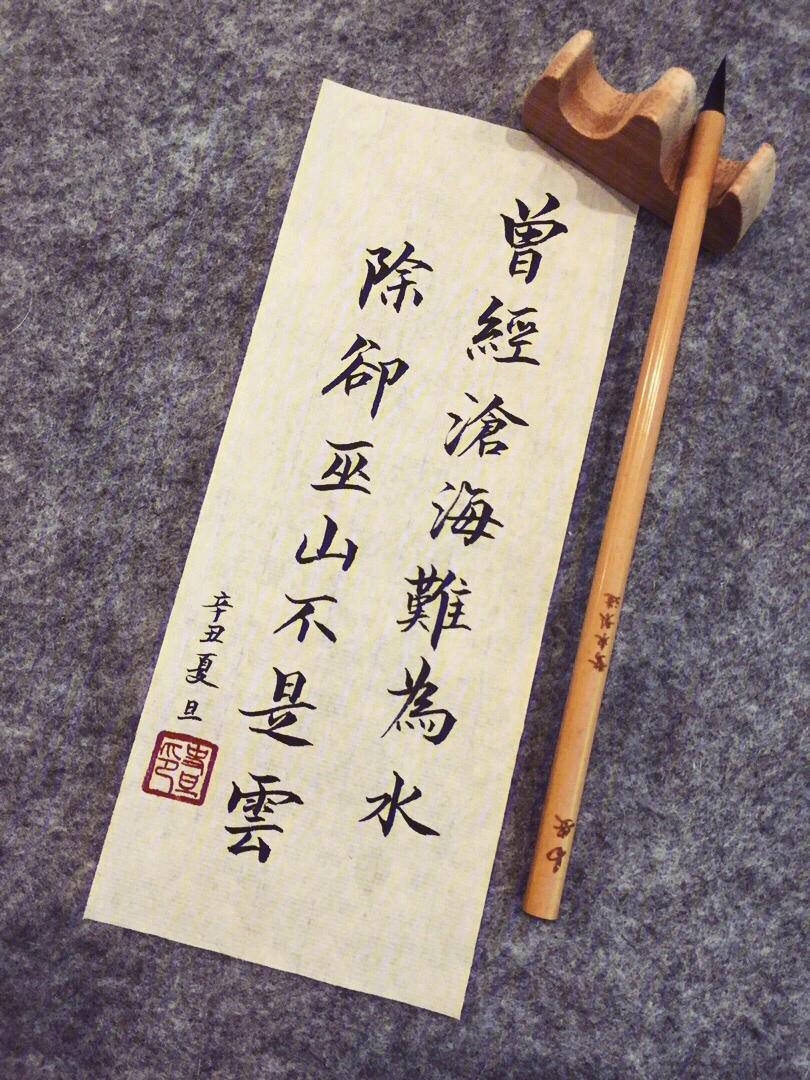 曾經滄海難為水
除卻巫山不是雲
辛丑夏旦